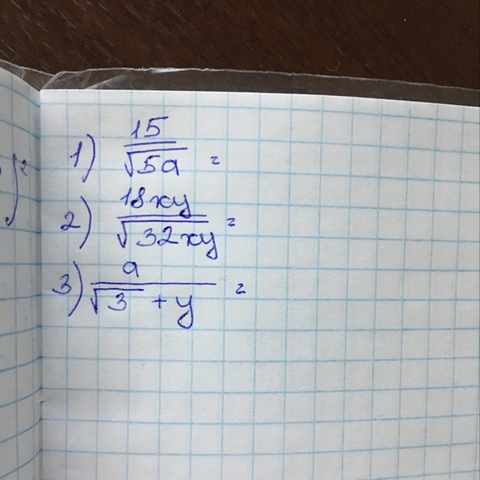 1) 15/√5a =
2) 18xy/√32xy =
3) a/√3 + y =
)²